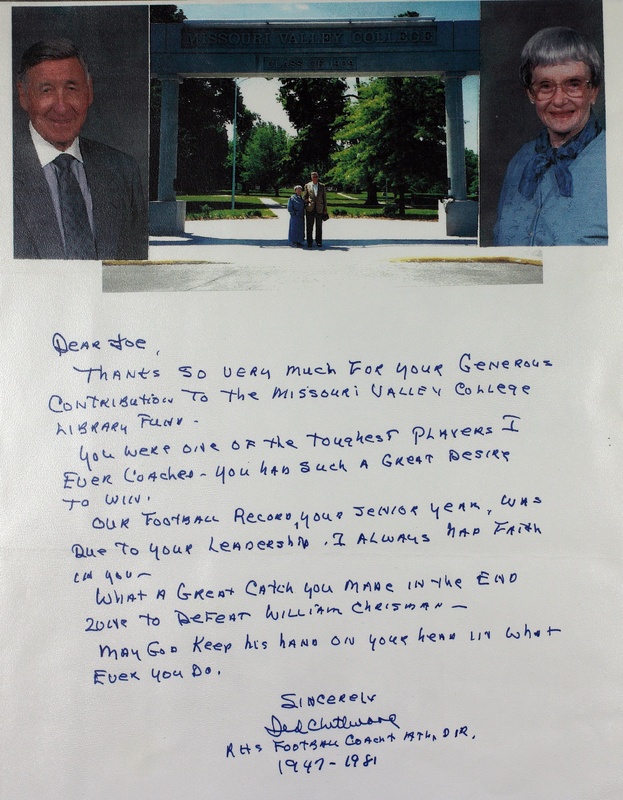 MISSOURI VALLEY COLLEGE
CLASS OF
DEAR JOE,
THANKS SO VERY MUCH FOR YOUR GENEROUS
CONTRIBUTION TO THE MISSOURI VALLEY COLLEGE
LIBRARY FUND -
YOU WERE ONE OF THE TOUGHEST PLAYERS I
EVER COACHED - YOU HAD SUCH A GREAT DESIRE
TO WIN.
OUR FOOTBALL RECORD, YOUR SENIOR YEAR, WAS
DUE TO YOUR LEADERSHIP. I ALWAYS HAD FAITH
IN YOU -
WHAT A GREAT CATCH YOU MADE IN THE END
ZONE TO DEFEAT WILLIAM CHRISMAN -
MAY GOD KEEP HIS HAND ON YOUR HEAD IN WHAT
EVER YOU DO.
SINCERELY
RHS FOOTBALL COACH + ATH. DIR.
1947 - 1981